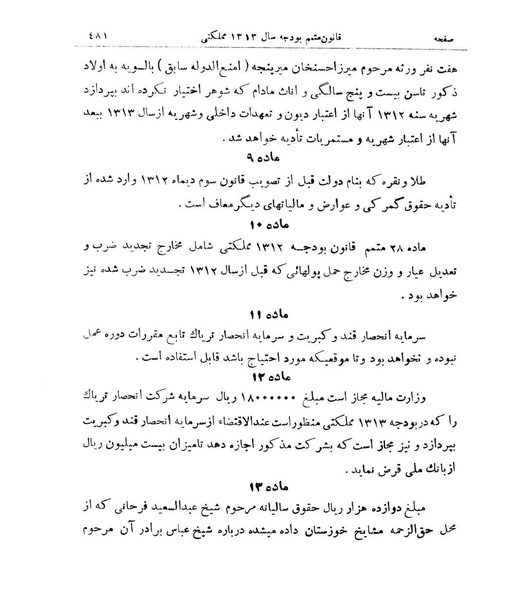 صفحه قانون متمم بودجه سال ۱۳۱۳ مملکتی ۴۸۱
هفت نفر ورثه مرحوم میرزاحسنخان میرپنجه ( امنع‌الدوله سابق ) بالسویه به اولاد
ذکور تاسن بیست و پنج سالگی و اناث مادام که شوهر اختیار نکرده اند بپردازد
شهریه سنه ۱۳۱۲ آنها از اعتبار دیون و تعهدات داخلی وشهریه ازسال ۱۳۱۳ ببعد
آنها از اعتبار شهریه و مستمریات تأدیه خواهد شد .
ماده ۹
طلا و نقره که بنام دولت قبل از تصویب قانون سوم دیماه ۱۳۱۲ وارد شده از
تأدیه حقوق گمرکی و عوارض و مالیاتهای دیگر معاف است .
ماده ۱۰
ماده ۲۸ متمم قانون بودجه ۱۳۱۲ مملکتی شامل مخارج تجدید ضرب و
تعدیل عیار و وزن مخارج حمل پولهائی که قبل ازسال ۱۳۱۲ تجدید ضرب شده نیز
خواهد بود .
ماده ۱۱
سرمایه انحصار قند و کبریت و سرمایه انحصار تریاک تابع مقررات دوره عمل
نبوده و نخواهد بود وتا موقعیکه مورد احتیاج باشد قابل استفاده است .
ماده ۱۲
وزارت مالیه مجاز است مبلغ ۱۸۰۰۰۰۰۰ ریال سرمایه شرکت انحصار تریاک
را که دربودجه ۱۳۱۳ مملکتی منظوراست عندالاقتضاء ازسرمایه انحصار قند وکبریت
بپردازد و نیز مجاز است که بشرکت مذکور اجازه دهد تامیزان بیست میلیون ریال
ازبانک ملی قرض نماید .
ماده ۱۳
مبلغ دوازده هزار ریال حقوق سالیانه مرحوم شیخ عبدالسعید فرحانی که از
محل حق‌الزحمه مشایخ خوزستان داده میشده درباره شیخ عباس برادر آن مرحوم